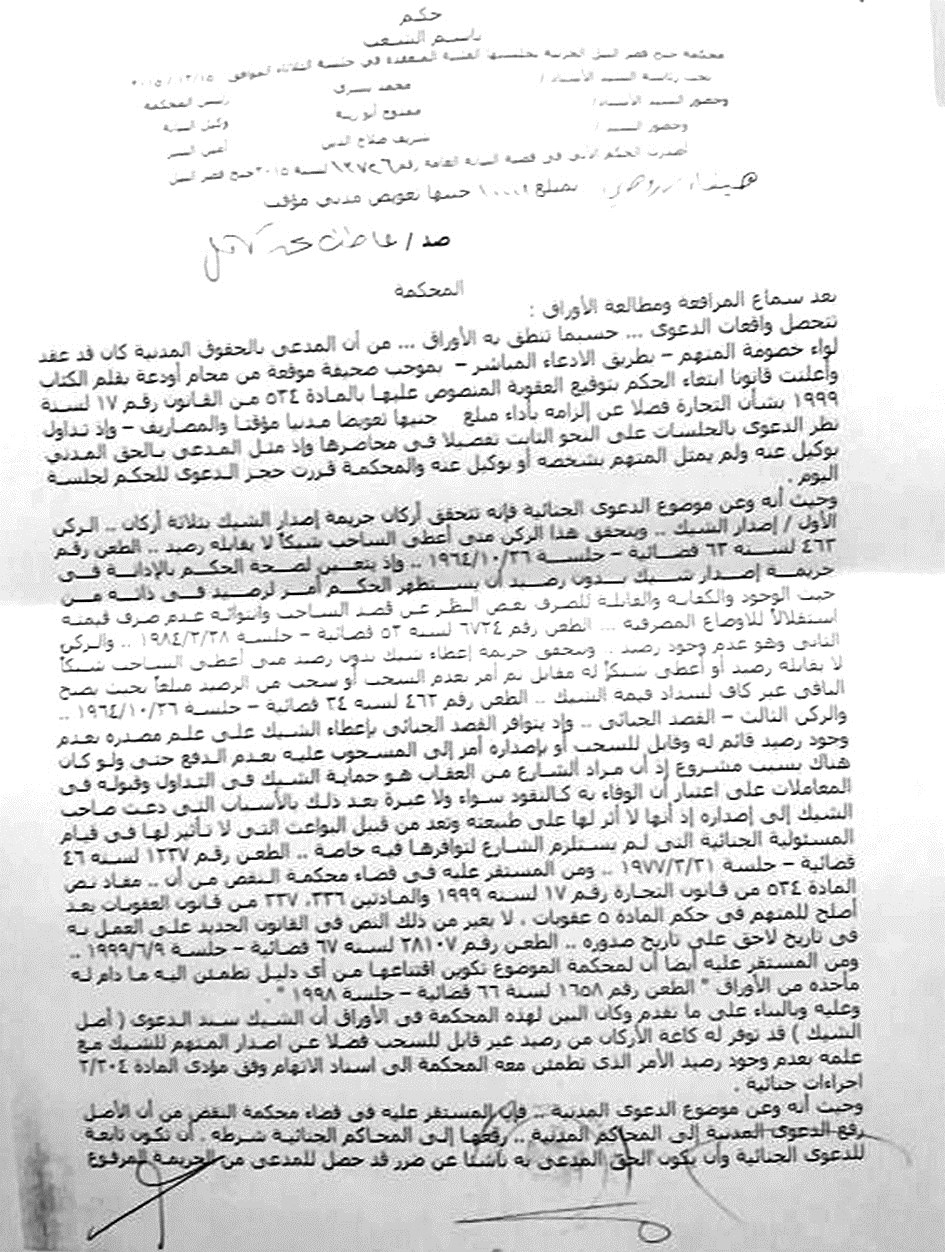 حكم
باسم الشعب
محكمة جنح قصر النيل الجزئية بجلستها العلنية المنعقدة في جلسة الثلاثاء الموافق ٢٠١٥/١٢/١٥
تحت رئاسة السيد الأستاذ / محمد يسرى رئيس المحكمة
وحضور السيد الأستاذ/ ممدوح أبو زينة وكيل النيابة
وحضور السيد / شريف صلاح الدين أمين السر
أصدرت الحكم الآتى فى قضية النيابة العامة رقم ١٢٧٢٦ لسنة ٢٠١٥ جنح قصر النيل
بمبلغ جنيها تعويض مدنى مؤقت
ضد /
المحكمة
بعد سماع المرافعة ومطالعة الأوراق :
تتحصل واقعات الدعوى ... حسبما تنطق به الأوراق ... من أن المدعى بالحقوق المدنية كان قد عقد
لواء خصومة المتهم – بطريق الادعاء المباشر – بموجب صحيفة موقعة من محام أودعة بقلم الكتاب
وأعلنت قانونا ابتغاء الحكم بتوقيع العقوبة المنصوص عليها بالمادة ٥٣٤ من القانون رقم ١٧ لسنة
١٩٩٩ بشأن التجارة فضلا عن إلزامه بأداء مبلغ جنيها تعويضا مدنيا مؤقتا والمصاريف – وإذ تداول
نظر الدعوى بالجلسات على النحو الثابت تفصيلا فى محاضرها وإذ مثل المدعى بالحق المدني
بوكيل عنه ولم يمثل المتهم بشخصه أو بوكيل عنه والمحكمة قررت حجز الدعوى للحكم لجلسة
اليوم .
وحيث أنه وعن موضوع الدعوى الجنائية فإنه تتحقق أركان جريمة إصدار الشيك بثلاثة أركان .. الركن
الأول / إصدار الشيك .. ويتحقق هذا الركن متى أعطى الساحب شيكاً لا يقابله رصيد .. الطعن رقم
٤٦٣ لسنه ٦٣ قضائية – جلسة ١٩٦٤/١٠/٢٦ .. وإذ يتعين لصحة الحكم بالإدانة فى
جريمة إصدار شيك بدون رصيد أن يستظهر الحكم أمر لرصيد فى ذاته من
حيث الوجود والكفاية والقابلة للصرف بغض النظر عن قصد الساحب وانتوائه عدم صرف قيمته
استقلالاً للاوضاع المصرفيه ... الطعن رقم ٦٧٢٤ لسنه ٥٣ قضائية – جلسة ١٩٨٤/٢/٢٨ .. والركن
الثانى وهو عدم وجود رصيد .. وتتحقق جريمه إعطاء شيك بدون رصيد متى أعطى الساحب شيكاً
لا يقابله رصيد أو أعطى شيكاً له مقابل ثم أمر بعدم السحب أو سحب من الرصيد مبلغاً بحيث يصبح
الباقى غير كاف لسداد قيمه الشيك .. الطعن رقم ٤٦٣ لسنه ٣٤ قضائية – جلسة ١٩٦٤/١٠/٢٦ ..
والركن الثالث – القصد الجنائى .. وإذ يتوافر القصد الجنائى بإعطاء الشيك على علم مصدره بعدم
وجود رصيد قائم له وقابل للسحب أو بإصداره أمر إلى المسحوب عليه بعدم الدفع حتى ولو كان
هناك بسبب مشروع إذ أن مراد الشارع من العقاب هو حماية الشيك فى التداول وقبوله فى
المعاملات على اعتبار أن الوفاء به كالنقود سواء ولا عبرة بعد ذلك بالأسباب التى دعت صاحب
الشيك إلى إصداره إذ أنها لا أثر لها على طبيعته وتعد من قبيل البواعث التى لا تأثير لها فى قيام
المسئولية الجنائية التى لم يستلزم الشارع لتوافرها فيه خاصة .. الطعن رقم ١٢٣٧ لسنه ٤٦
قضائية – جلسة ١٩٧٧/٣/٢١ .. ومن المستقر عليه فى قضاء محكمة النقض من أن .. مفاد نص
المادة ٥٣٤ من قانون التجارة رقم ١٧ لسنه ١٩٩٩ والمادتين ٣٣٦، ٣٣٧ من قانون العقوبات يعد
أصلح للمتهم فى حكم المادة ٥ عقوبات . لا يغير من ذلك النص فى القانون الجديد على العمل به
فى تاريخ لاحق على تاريخ صدوره .. الطعن رقم ٢٨١٠٧ لسنه ٦٧ قضائية – جلسة ١٩٩٩/٦/٩ ..
ومن المستقر عليه أيضا أن لمحكمة الموضوع تكوين اقتناعها من أى دليل تطمئن اليه ما دام له
مأخذه من الأوراق " الطعن رقم ١٦٥٨ لسنة ٦٦ قضائية – جلسة ١٩٩٨ " .
وعليه وبالبناء على ما تقدم وكان البين لهذه المحكمة فى الأوراق أن الشيك سند الدعوى ( أصل
الشيك ) قد توفر له كاعة الأركان من رصيد غير قابل للسحب فضلا عن اصدار المتهم للشيك مع
علمه بعدم وجود رصيد الأمر الذى تطمئن معه المحكمة الى اسناد الاتهام وفق مؤدى المادة ٢/٣٠٤
اجراءات جنائية .
وحيث أنه وعن موضوع الدعوى المدنية .. فإن المستقر عليه فى قضاء محكمة النقض من أن الأصل
رفع الدعوى المدنية إلى المحاكم المدنية .. رفعها إلى المحاكم الجنائية شرطه . أن تكون تابعة
للدعوى الجنائية وأن يكون الحق المدعى به ناشئا عن ضرر قد حصل للمدعى من الجريمة المرفوع